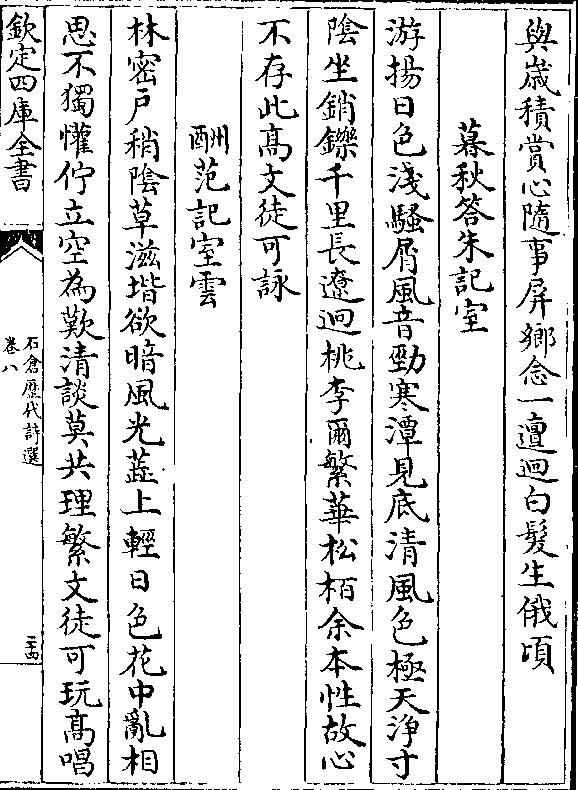 與歲積賞心隨事屏鄉念一邅迴白髮生俄頃
暮秋答朱記室
游揚日色淺騷屑風音勁寒潭見底清風色極天淨寸
陰坐銷鑠千里長遼迥桃李爾繁華松栢余本性故心
不存此髙文徒可詠
酬范記室雲
林密戶稍陰草滋堦欲暗風光蘂上輕日色花中亂相
思不獨懽佇立空為歎清談莫共理繁文徒可玩髙唱
欽定四庫全書
石倉歷代詩選
卷八
二十四